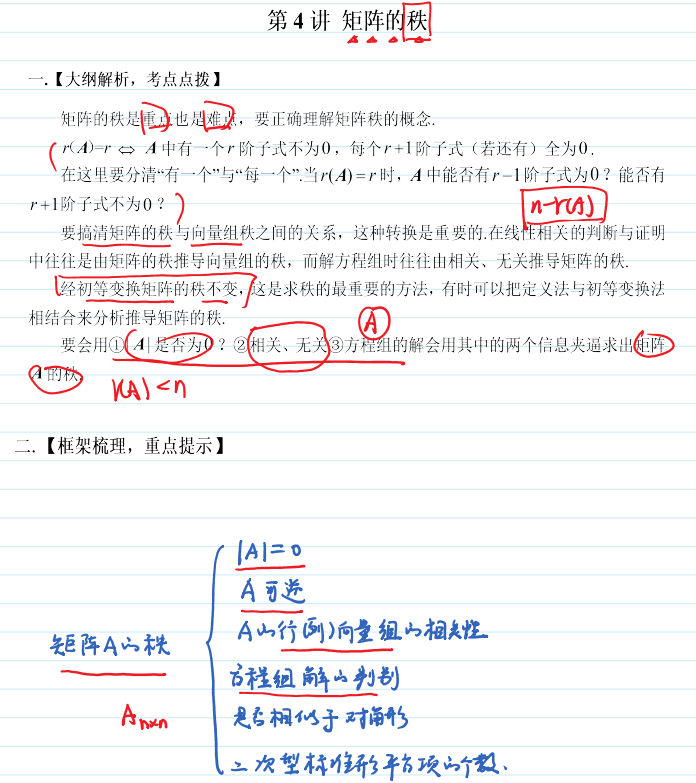 第 4 讲 矩阵的秩
一.【大纲解析，考点点拨】
矩阵的秩是重点也是难点，要正确理解矩阵秩的概念.
r(A)=r ⇔ A 中有一个 r 阶子式不为0，每个 r+1阶子式（若还有）全为0.
在这里要分清“有一个”与“每一个”.当r(A)=r时，A 中能否有r−1阶子式为0？能否有
r+1阶子式不为0？
n-r(A)
要搞清矩阵的秩与向量组秩之间的关系，这种转换是重要的.在线性相关的判断与证明
中往往是由矩阵的秩推导向量组的秩，而解方程组时往往由相关、无关推导矩阵的秩.
经初等变换矩阵的秩不变，这是求秩的最重要的方法，有时可以把定义法与初等变换法
相结合来分析推导矩阵的秩.
A
要会用①|A|是否为0？②相关、无关③方程组的解会用其中的两个信息夹逼求出矩阵
A的秩.
r(A)<n
二.【框架梳理，重点提示】
|A|=0
A可逆
A的行(列)向量组的相关性
矩阵A的秩
方程组解的判别
An×n
是否相似于对角形
二次型标准形平方项的个数.